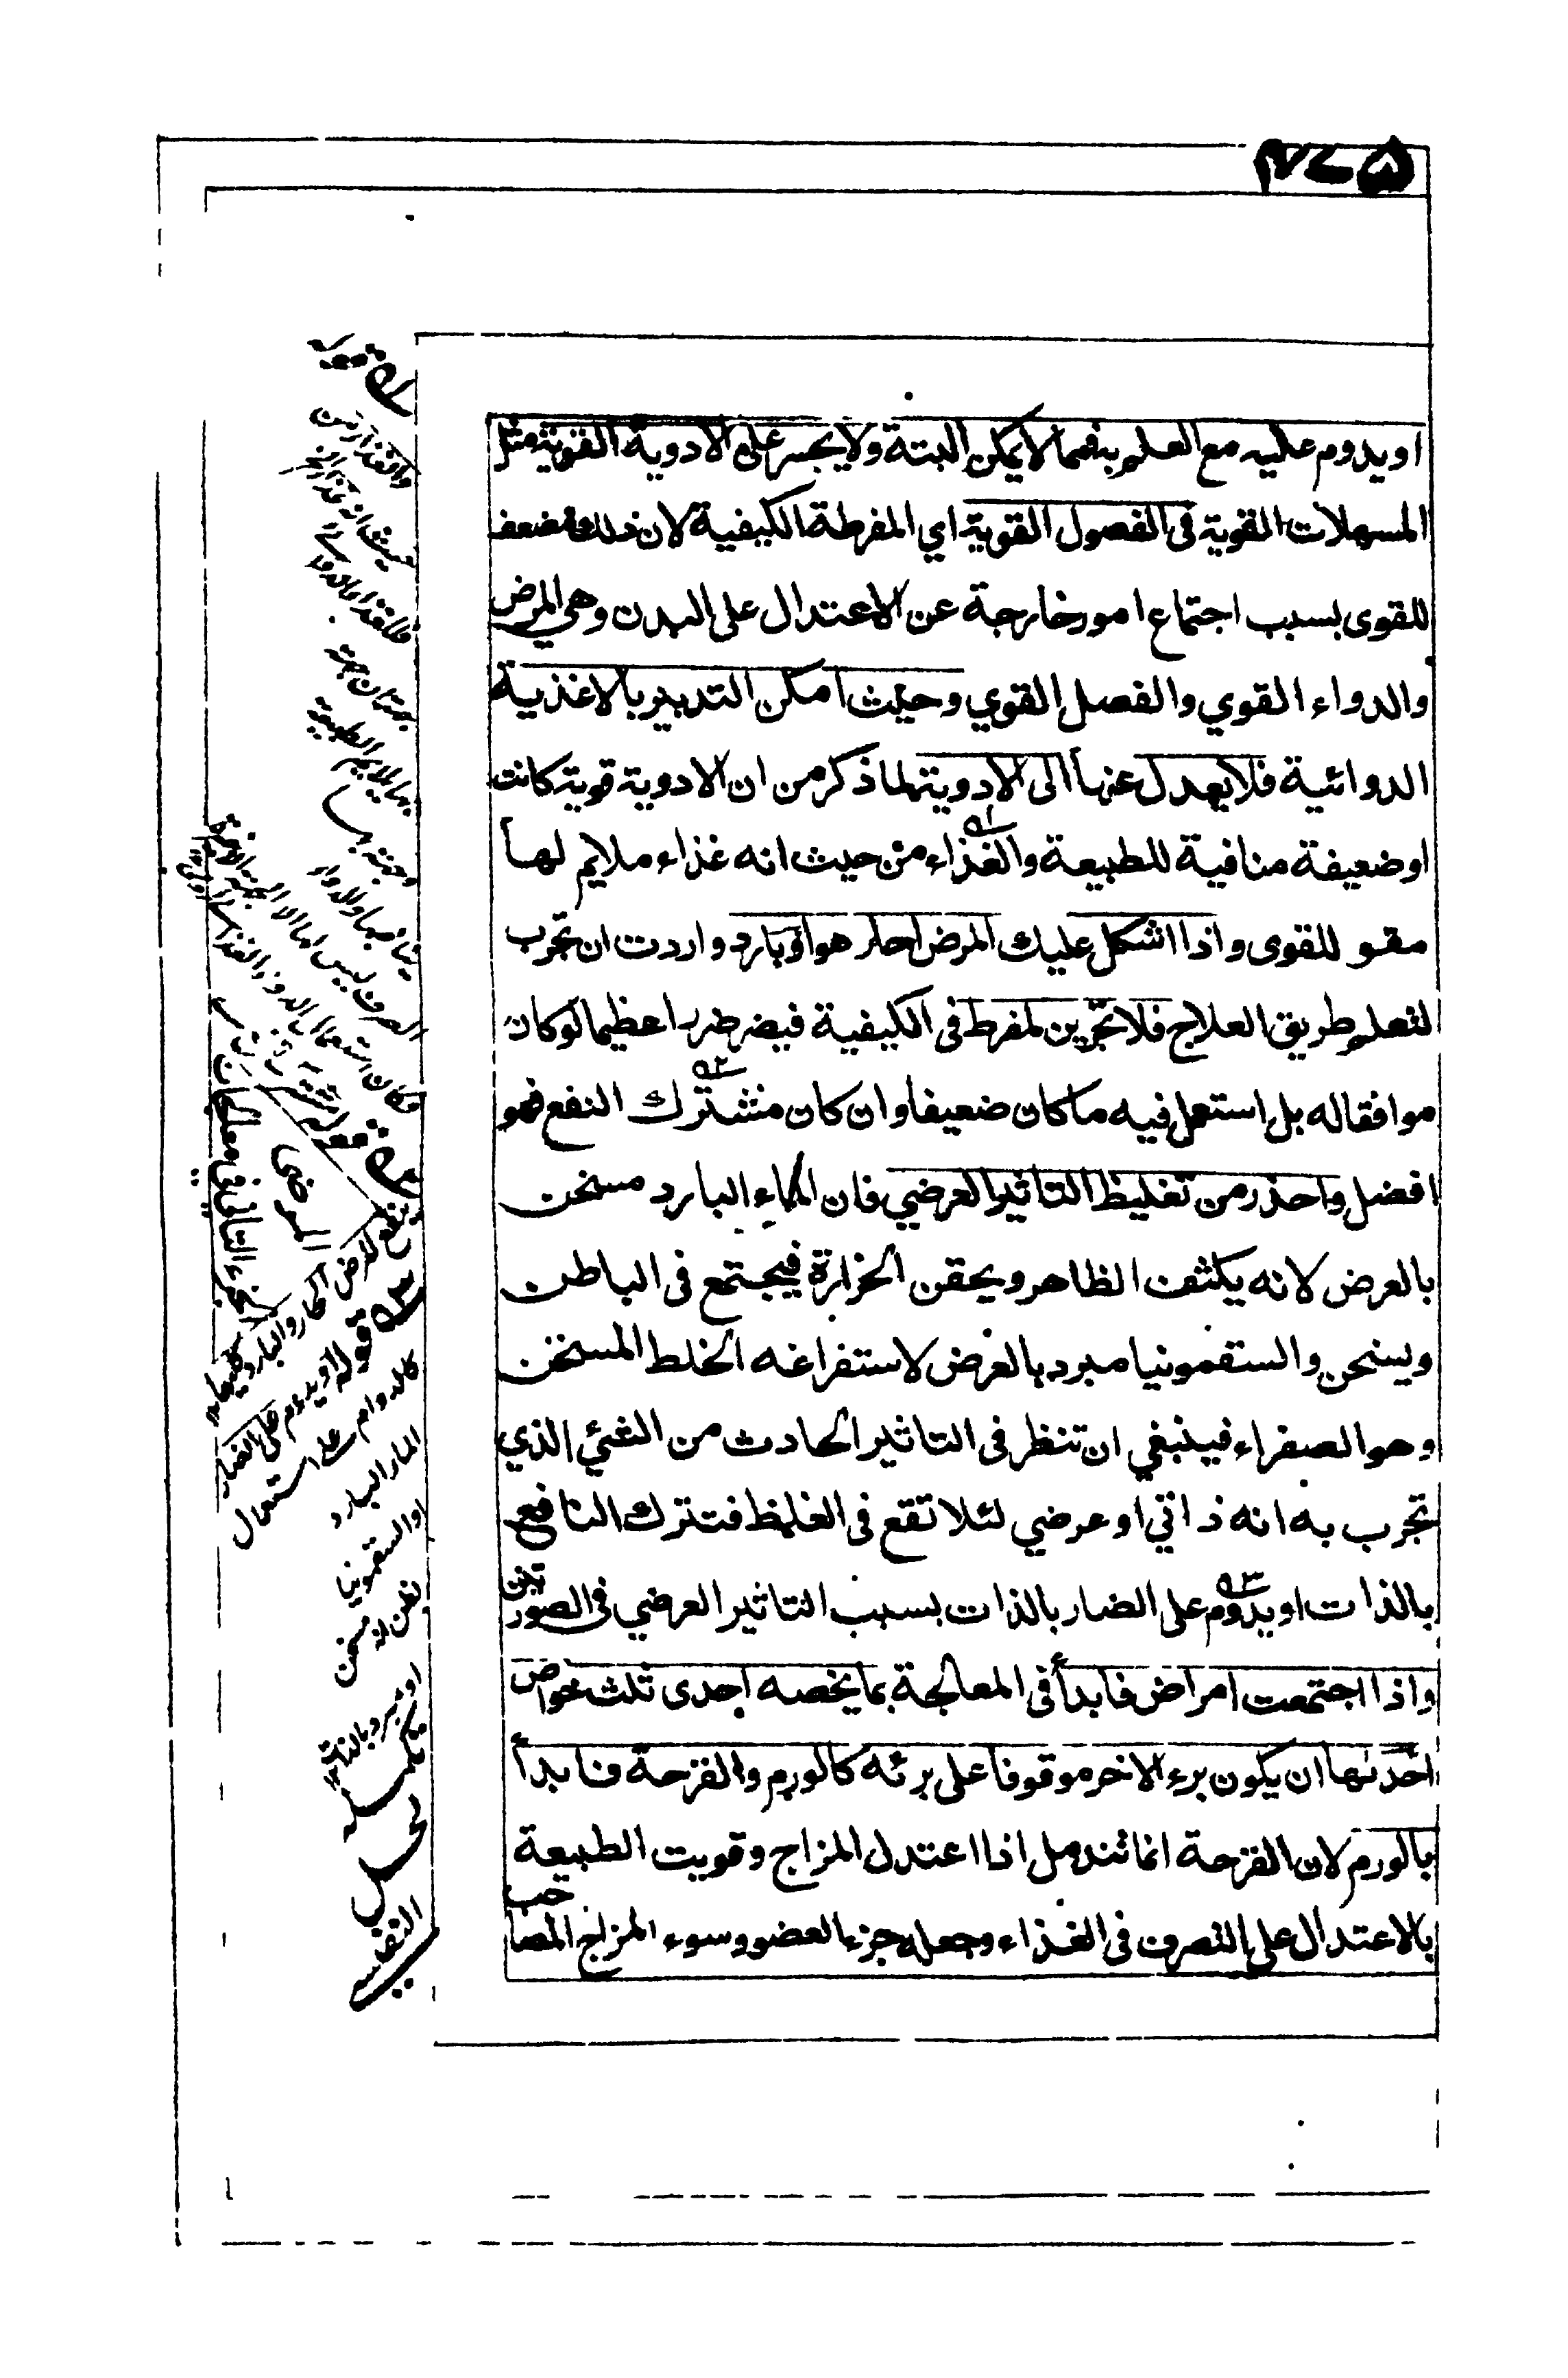 او يدوم عليه مع العلم به فمما لا يمكن البتة ولا يجسر على الادوية القوية مثل
المسهلات القوية فى الفصول القوية اي المفرطة الكيفية لان ذلك مضعف
للقوى بسبب اجتماع امور خارجة عن الاعتدال على البدن وهي المرض
والدواء القوي والفصل القوي وحيث امكن التدبير بالاغذية
الدوائية فلا يعدل عنها الى الادوية لما ذكر من ان الادوية قوية كانت
او ضعيفة منافية للطبيعة والغذاء من حيث انه غذاء ملايم لها
مقو للقوى واذا اشكل عليك المرض احار هو او بارد واردت ان تجرب
لتعلم طريق العلاج فلا تجربن لمفرط فى الكيفية فيضر ضررا عظيما لو كان
موافقا له بل استعمل فيه ما كان ضعيفا وان كان مشترك النفع فهو
افضل واحذر من تغليظ التاثير العرضي فان الماء البارد مسخن
بالعرض لانه يكثف الظاهر ويحقن الحرارة فيجتمع فى الباطن
ويسخن والسقمونيا مبرد بالعرض لاستفراغه الخلط المسخن
وهو الصفراء فينبغي ان تنظر فى التاثير الحادث من الشئ الذي
تجرب به انه ذاتي او عرضي لئلا تقع فى الغلط فتترك النافع
بالذات او يدوم على الضار بالذات بسبب التاثير العرضي فى الصورتين
واذا اجتمعت امراض فابدأ فى المعالجة بما يخصه احدى ثلث خواص
احدىها ان يكون برء الاخر موقوفا على برئه كالورم والقرحة فابدأ
بالورم لان القرحة انما تندمل اذا اعتدل المزاج وقويت الطبيعة
بالاعتدال على التصرف فى الغذاء وجعله جزء العضو وسوء المزاج المصاحب
قوله
والغذاء من
حيث انه غذاء
فللغذاء الدوائي
جهتان جهة
بها يلايم الطبيعة
وجهة بها
ينافيها
قوله مشترك
النفع للمرض الحار والبارد
قوله او يدوم على الضار
كالدوام على استعمال
الماء البارد
او السقمونيا
لظن انه مسخن
او مبرد بالذات
حل
النفيسي